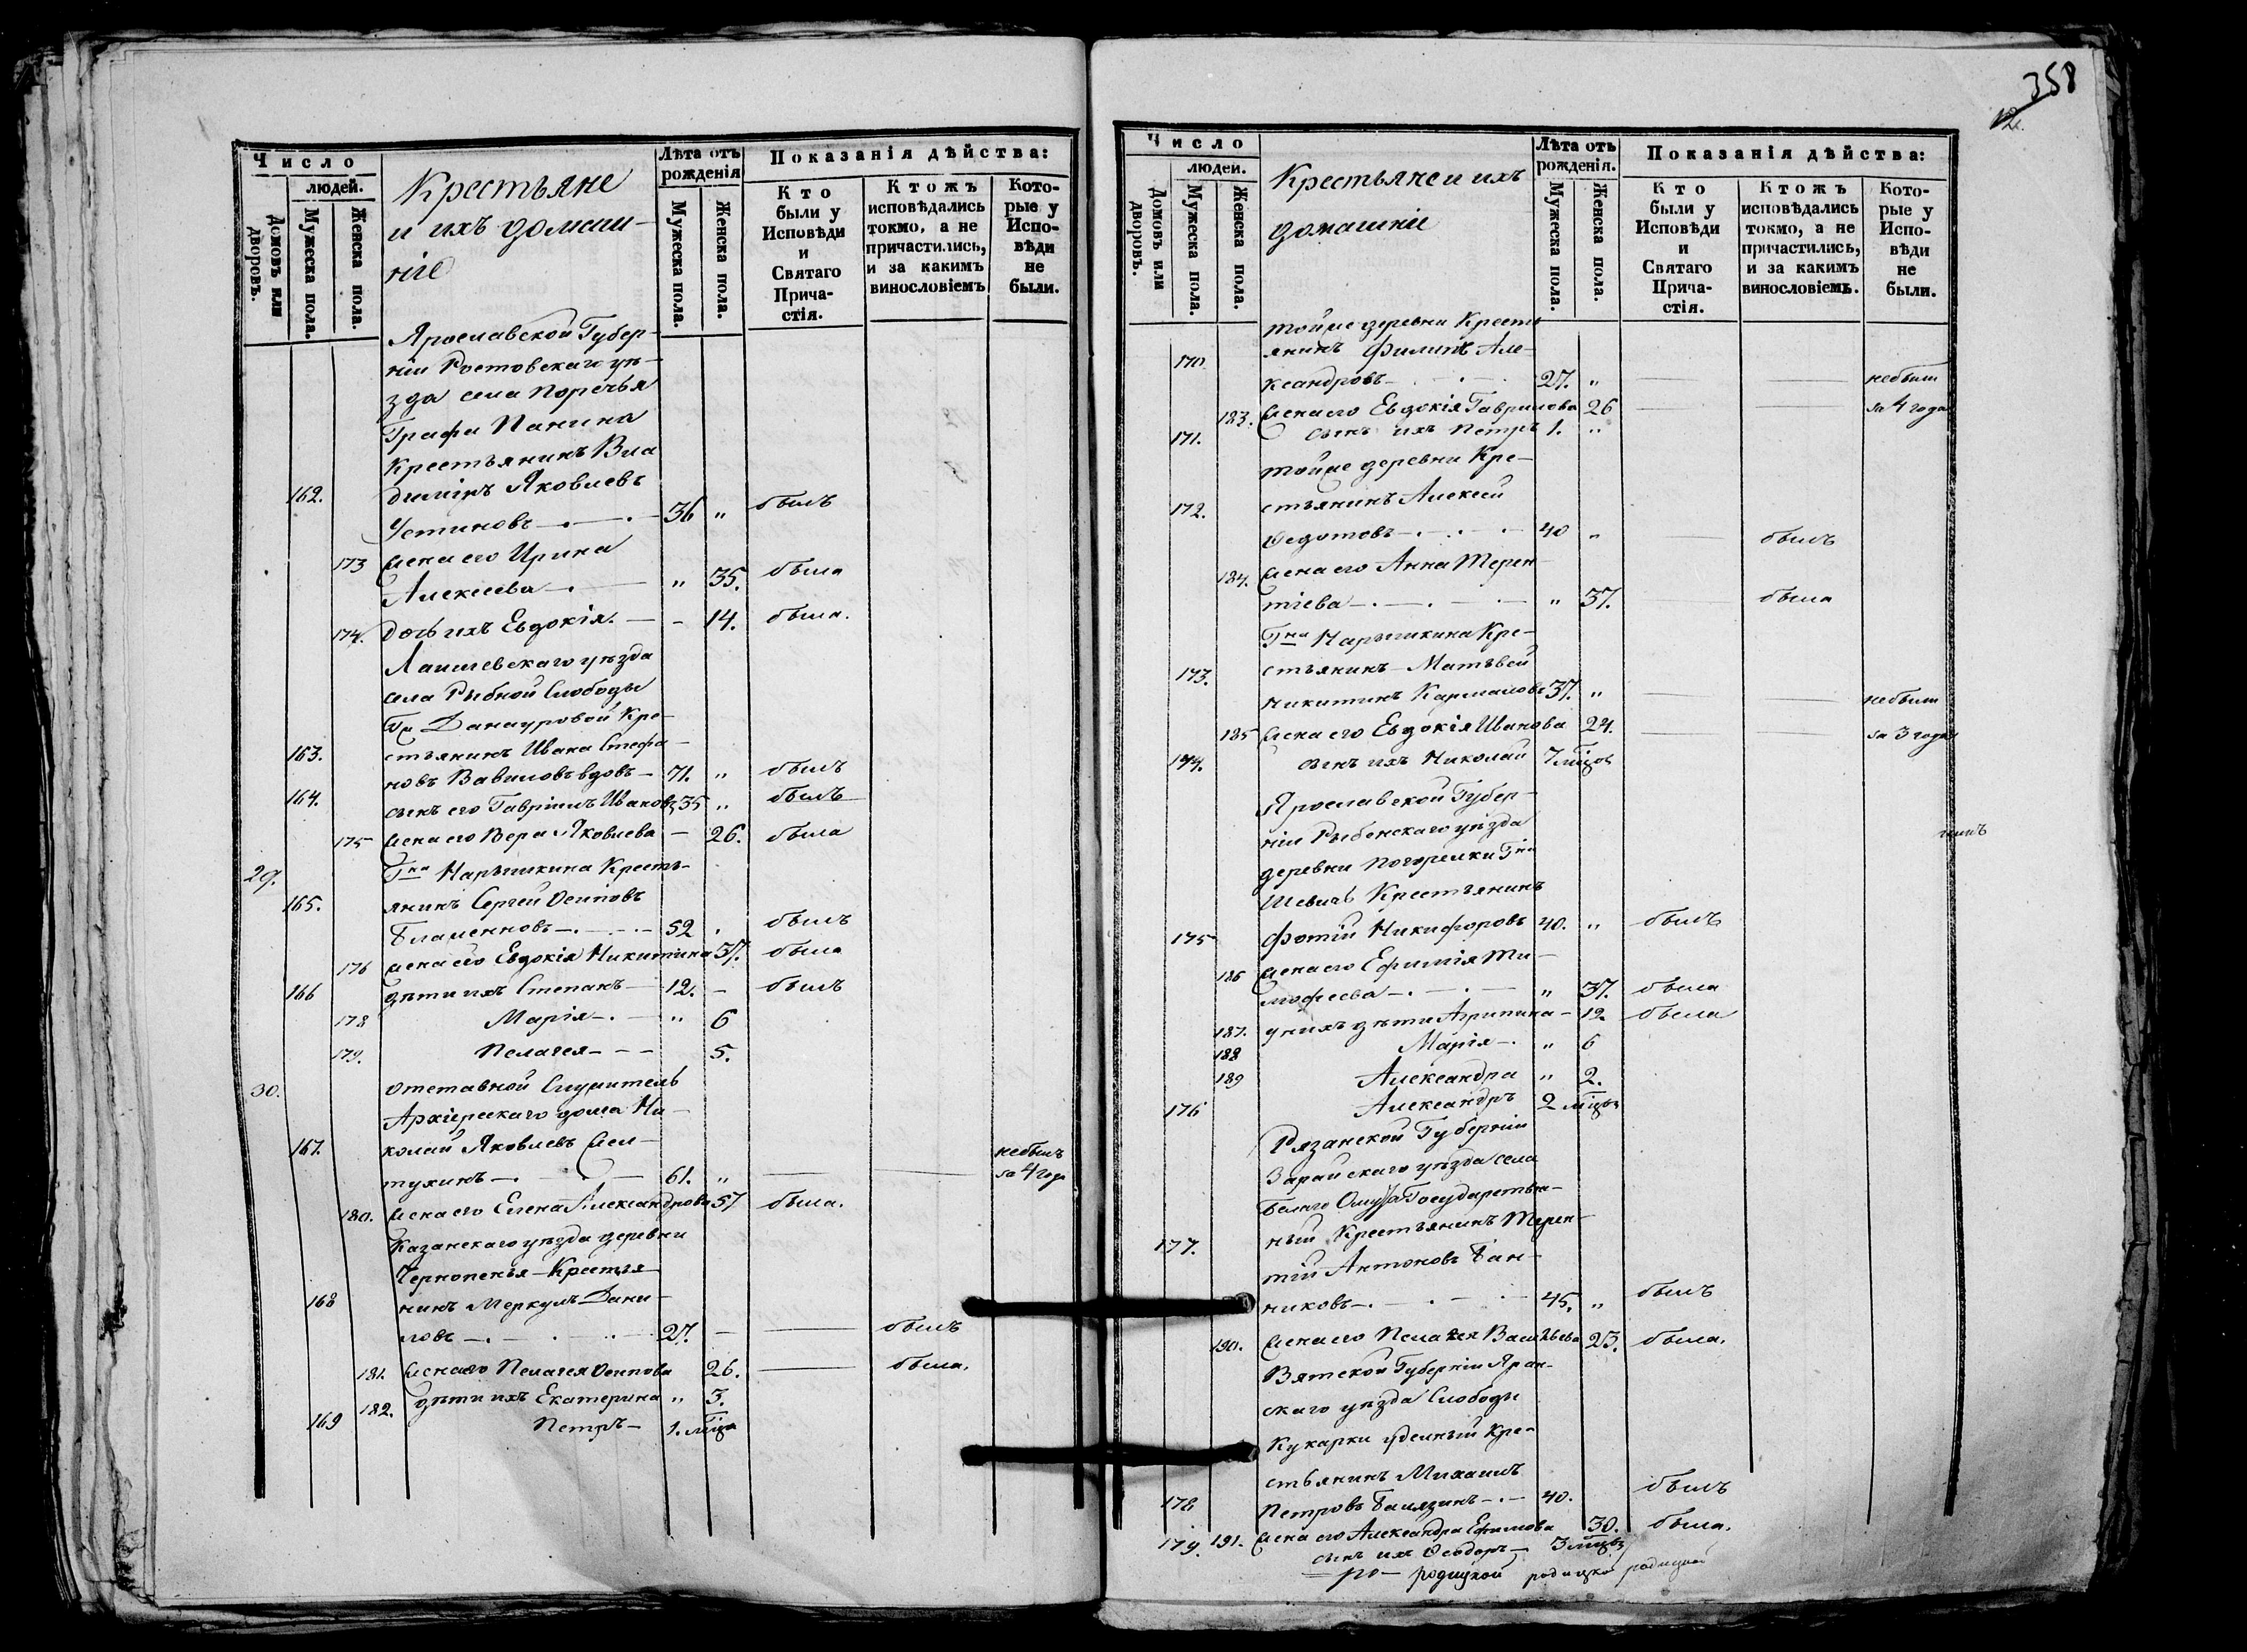 Число
людей.
Домовъ или дворовъ.
Мужеска пола.
Женска пола.
Крестьяне
и ихъ домаш-
ніе
Лѣта отъ
рожденія
Мужеска пола.
Женска пола.
Показанія дѣйства:
Кто
были у
Исповѣди
и
Святаго
Прича-
стія.
Ктожъ
исповѣдались
токмо, а не
причастились,
и за какимъ
винословіемъ
Кото-
рые у
Испо-
вѣди
не
были.
Ярославской Губер-
ніи Ростовскаго уѣ-
зда села Поречья
Графа Панина
Крестьянинъ Вла
162. димиръ Яковлевъ
Устиновъ — 36 „ былъ
173 жена его Ирина
Алексеева — „ 35. была
174. дочь ихъ Евдокія. — - 14. была.
Лаишевскаго уѣзда
села Рыбной Слободы
Гжи Данауровой Кре-
163. стьянинъ Иванъ Стефа-
новъ Вавиловъ вдовъ — 71. „ былъ
164. сынъ его Гавріилъ Ивановъ 35 „ былъ
175 жена его Вера Яковлева — 26. была
29. Гна Нарышкина Кресть-
165. янинъ Сергей Осиповъ
Пламенновъ — 52 . былъ
176 жена его Евдокія Никитина 37. была
166 дѣти ихъ Степанъ — 12. — былъ
178 Марія — „ 6
179. Пелагея — 5.
30. отставной Служитель
Архіерескаго дома Ни-
167. колай Яковлевъ Жел-
тухинъ — 61. „ — — небылъ за 4 года
180. жена его Елена Александрова 57 была.
Казанскаго уѣзда деревни
Чернопенья Крестья-
168 нинъ Меркулъ Дани-
ловъ — 27. — — былъ
181. жена его Пелагея Осипова 26. — была.
182. дѣти ихъ Екатерина „ 3.
169 Петръ — 1. мѣця
358
12.
Число
людей.
Домовъ или дворовъ.
Мужеска пола.
Женска пола.
Крестьяне и ихъ
домашніе
Лѣта отъ
рожденія.
Мужеска пола.
Женска пола.
Показанія дѣйства:
Кто
были у
Исповѣди
и
Святаго
Прича-
стія.
Ктожъ
исповѣдались
токмо, а не
причастились,
и за какимъ
винословіемъ.
Кото-
рые у
Испо-
вѣди
не
были.
тойже деревни Кресть
170. янинъ Филипъ Але-
ксандровъ — 27. „ — — небыли
183. жена его Евдокія Гаврилова 26 — — за 4 года
171. сынъ ихъ Петръ 1. „
тойже деревни Кре-
172. стьянинъ Алексей
Ѳедотовъ — 40 „ — былъ
184. жена его Анна Терен-
тіева — „ 37. — была
Гна Нарышкина Кре-
173. стьянинъ Матвей
Никитинъ Кармановъ 37. „ — — небыли
185 жена его Евдокія Иванова 24. — — за 3 года
174. сынъ ихъ Николай 7 мѣцовъ
Ярославской Губер-
ніи Рыбенскаго уѣзда
деревни Погорелки Гна
Шевичь Крестьянинъ
175 Фотій Никифоровъ 40. „ былъ
186 жена его Ефимія Ти-
мофеева — „ 37. была
187. у нихъ дѣти Агрипина — 12. была
188 Марія — „ 6
189 Александра „ 2.
176 Александръ 2 мѣца
Рязанской Губерніи
Зарайскаго уѣзда села
Белаго Омута Государствен-
ный Крестьянинъ Терен-
177. тій Антоновъ Бан-
никовъ — 45. „ былъ
190. жена его Пелагея Васильева 23. была.
Вятской Губерніи Яран-
скаго уѣзда Слободы
Кукарки удельный Кре-
стьянинъ Михаилъ
178 Петровъ — 40. былъ
191. жена его Александра Ефимова 30. была.
179. сынъ ихъ Ѳеодоръ — 3 мѣцовъ